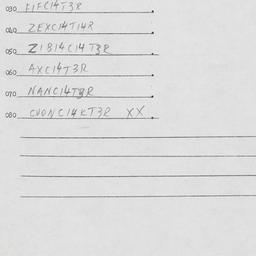 030 FIFC14T3R
040 ZEXC14T14R
050 Z1814C14T3R
060 AXC14T3R
070 NANC14T3R
080 CVONC14KT3R XX